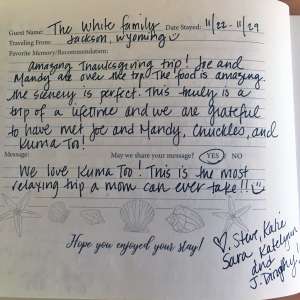 Guest Name: The White family Date Stayed: 11/22 - 11/29
Traveling From: Jackson, Wyoming
Favorite Memory/Recommendation:
Amazing Thanksgiving trip! Joe and
Mandy are over the top. The food is amazing.
The scenery is perfect. This truly is a
trip of a lifetime and we are grateful
to have met Joe and Mandy, Chuckles, and
Kuma Too!
Message: May we share your message? YES NO
We love Kuma Too! This is the most
relaxing trip a mom can ever take!!
Hope you enjoyed your stay!
Steve, Katie
Sara Katelynn
and
J. Dorothy!